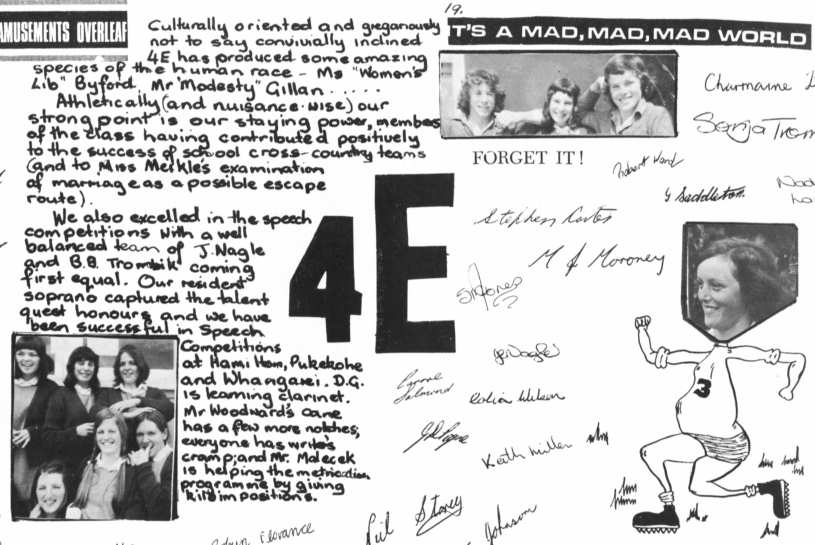 AMUSEMENTS OVERLEAF
Culturally oriented and gregariously
not to say convivially inclined
4E has produced some amazing
species of the human race - Ms "Women's
Lib" Byford. Mr "Modesty" Gillan .....
Athletically (and nuisance-wise) our
strong point is our staying power, members
of the class having contributed positively
to the success of school cross-country teams
(and to Miss Meikle's examination
of marriage as a possible escape
route).
We also excelled in the speech
competitions with a well
balanced team of J. Nagle
and B.B. Trombik coming
first equal. Our resident
soprano captured the talent
quest honours and we have
been successful in Speech
Competitions
at Hami Ham, Pukekohe
and Whangarei. D.G.
is learning clarinet.
Mr Woodward's cane
has a few more notches;
everyone has writer's
cramp; and Mr. Malecek
is helping the metrication
programme by giving
kilo impositions.
19.
IT'S A MAD, MAD, MAD WORLD
FORGET IT!
4E
Charmaine
Sonja Trom
Robert Ward
G Saddleton.
Stephen Carter
M J Moroney
S Jones
J Nagle
Lynne Salmond
Colin Wilson
Keith Miller
Florance
Storey
Johnson
3